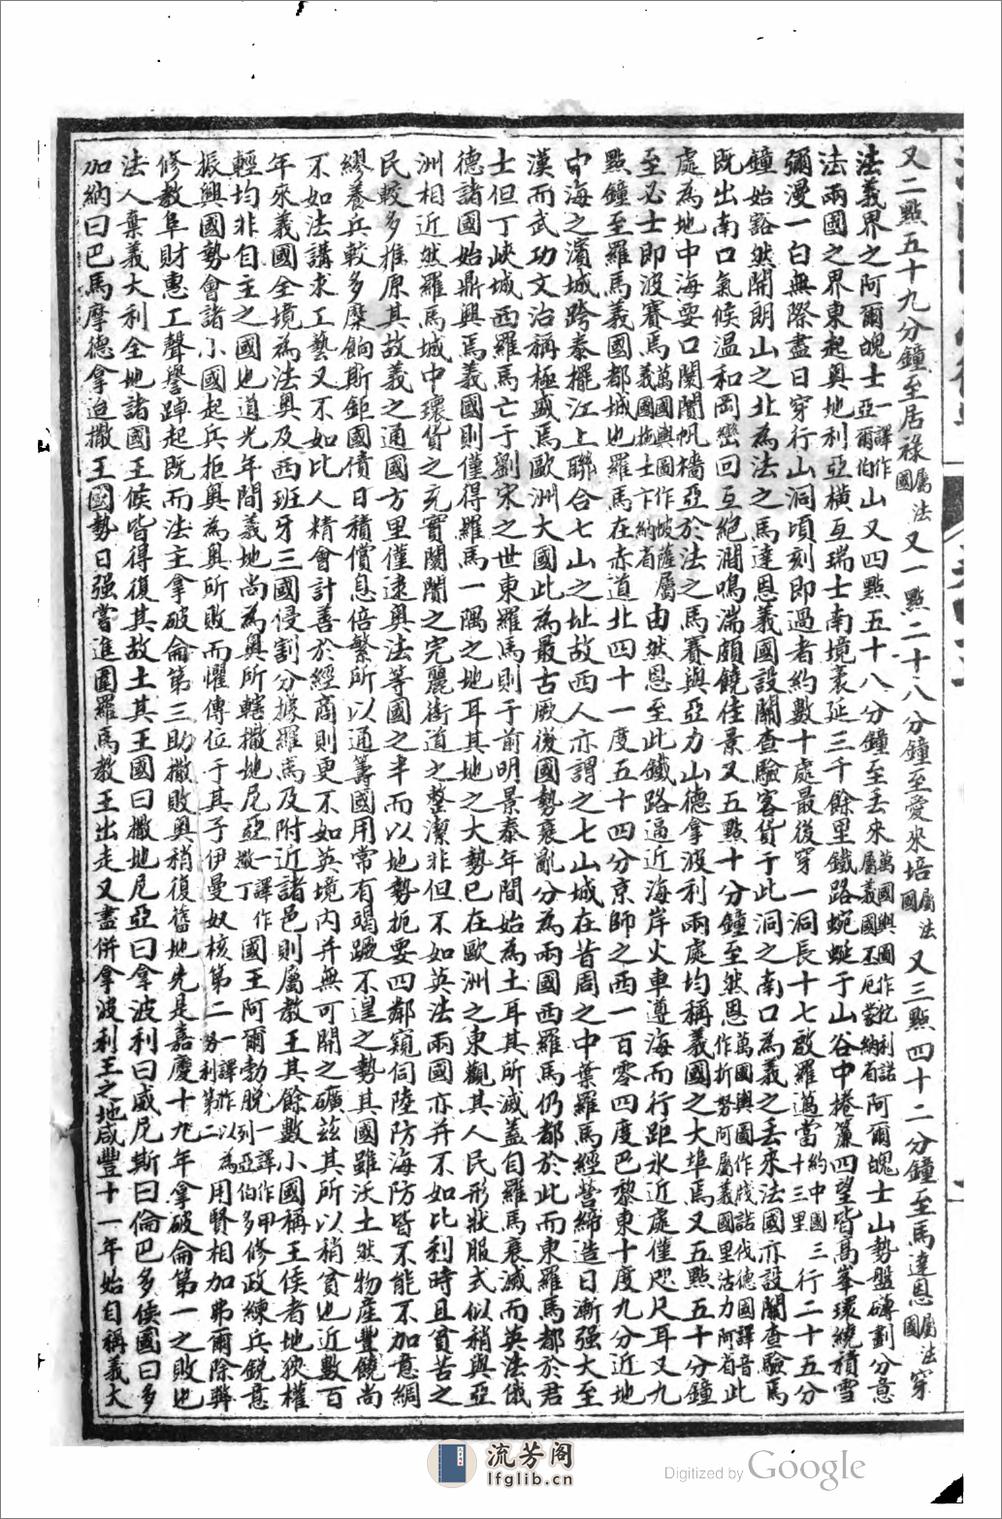 又二點五十九分鐘至居祿屬法國又一點二十八分鐘至愛來培屬法國又三點四十二分鐘至馬達恩屬法國穿
法義界之阿爾魄士一譯作亞爾伯山又四點五十八分鐘至丟來萬國輿圖作抌利諾屬義國丕厄蒙納省阿爾魄士山勢盤礡劃分意
法兩國之界東起奧地利亞橫亙瑞士南境袤延三千餘里鐵路蜿蜒于山谷中捲簾四望皆高峯環繞積雪
彌漫一白無際盡日穿行山洞頃刻即過者約數十處最後穿一洞長十七啟羅邁當約中國三十三里行二十五分
鐘始豁然開朗山之北為法之馬達恩義國設關查驗客貨于此洞之南口為義之丟來法國亦設關查驗焉
既出南口氣候溫和岡巒回互絕澗鳴湍頗饒佳景又五點十分鐘至然恩萬國輿圖作戏諾伐德國譯音作折努阿屬義國里沽力阿省此
處為地中海要口闤闠帆檣亞於法之馬賽與亞力山德拿波利兩處均稱義國之大埠焉又五點五十分鐘
至必士即波賽萬國輿圖作坡薩屬義國拖士卞納省由然恩至此鐵路逼近海岸火車遵海而行距水近處僅咫尺耳又九
點鐘至羅馬義國都城也羅馬在赤道北四十一度五十四分京師之西一百零四度巴黎東十度九分近地
中海之濱城跨泰擺江上聯合七山之址故西人亦謂之七山城在昔周之中葉羅馬經營締造日漸強大至
漢而武功文治稱極盛焉歐洲大國此為最古厥後國勢衰亂分為兩國西羅馬仍都於此而東羅馬都於君
士但丁峽城西羅馬亡于劉宋之世東羅馬則于前明景泰年間始為土耳其所滅蓋自羅馬衰滅而英法俄
德諸國始鼎興焉義國則僅得羅馬一隅之地耳其地之大勢已在歐洲之東觀其人民形狀服式似稍與亞
洲相近然羅馬城中環貨之充實闤闠之完麗街道之整潔非但不如英法兩國亦并不如比利時且貧苦之
民較多推原其故義之通國方里僅逮奧法等國之半而以地勢扼要四鄰窺伺陸防海防皆不能不加意綢
繆養兵較多糜餉斯鉅國債日積償息倍繁所以通籌國用常有竭蹶不遑之勢其國雖沃土然物產豐饒尚
不如法講求工藝又不如比人精會計善於經商則更不如英境內并無可開之礦茲其所以稍貧也近數百
年來義國全境為法奧及西班牙三國侵割分據羅馬及附近諸邑則屬教王其餘數小國稱王侯者地狹權
輕均非自主之國也道光年間義地尚為奧所轄撒地尼亞一譯作撒丁國王阿爾勃脫一譯作甲列亞伯多修政練兵銳意
振興國勢會諸小國起兵拒奧為奧所敗而懼傳位于其子伊曼奴核第二一譯作以努利第二為用賢相加弗爾除弊
修教阜財惠工聲譽踔起既而法主拿破侖第三助撒敗奧稍復舊地先是嘉慶十九年拿破侖第一之敗也
法人棄義大利全地諸國王候皆得復其故土其王國曰撒地尼亞曰拿波利曰威尼斯曰倫巴多侯國曰多
加納曰巴馬摩德拿迨撒王國勢日強嘗進圍羅馬教王出走又盡併拿波利王之地咸豐十一年始自稱義大
流芳阁
lfglib.cn
Digitized by Google